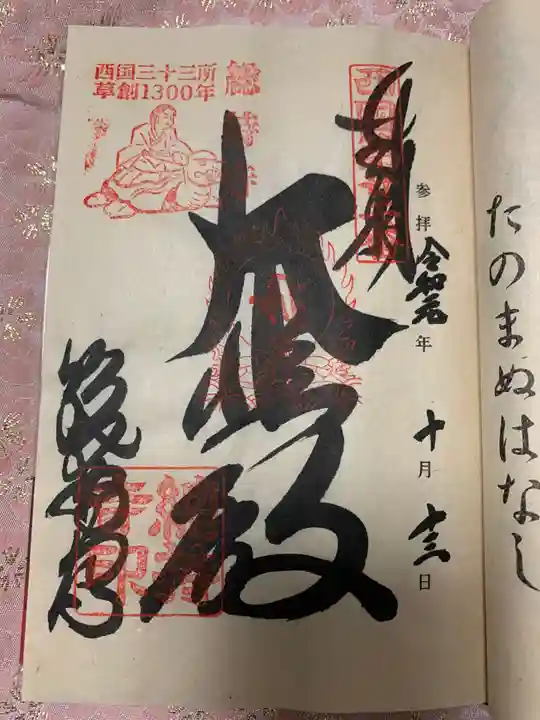 たのまぬはなし
奉拝
参拝 令和元年 十月 十三日
大悲殿
総持寺
西国三十三所
草創1300年
総持寺